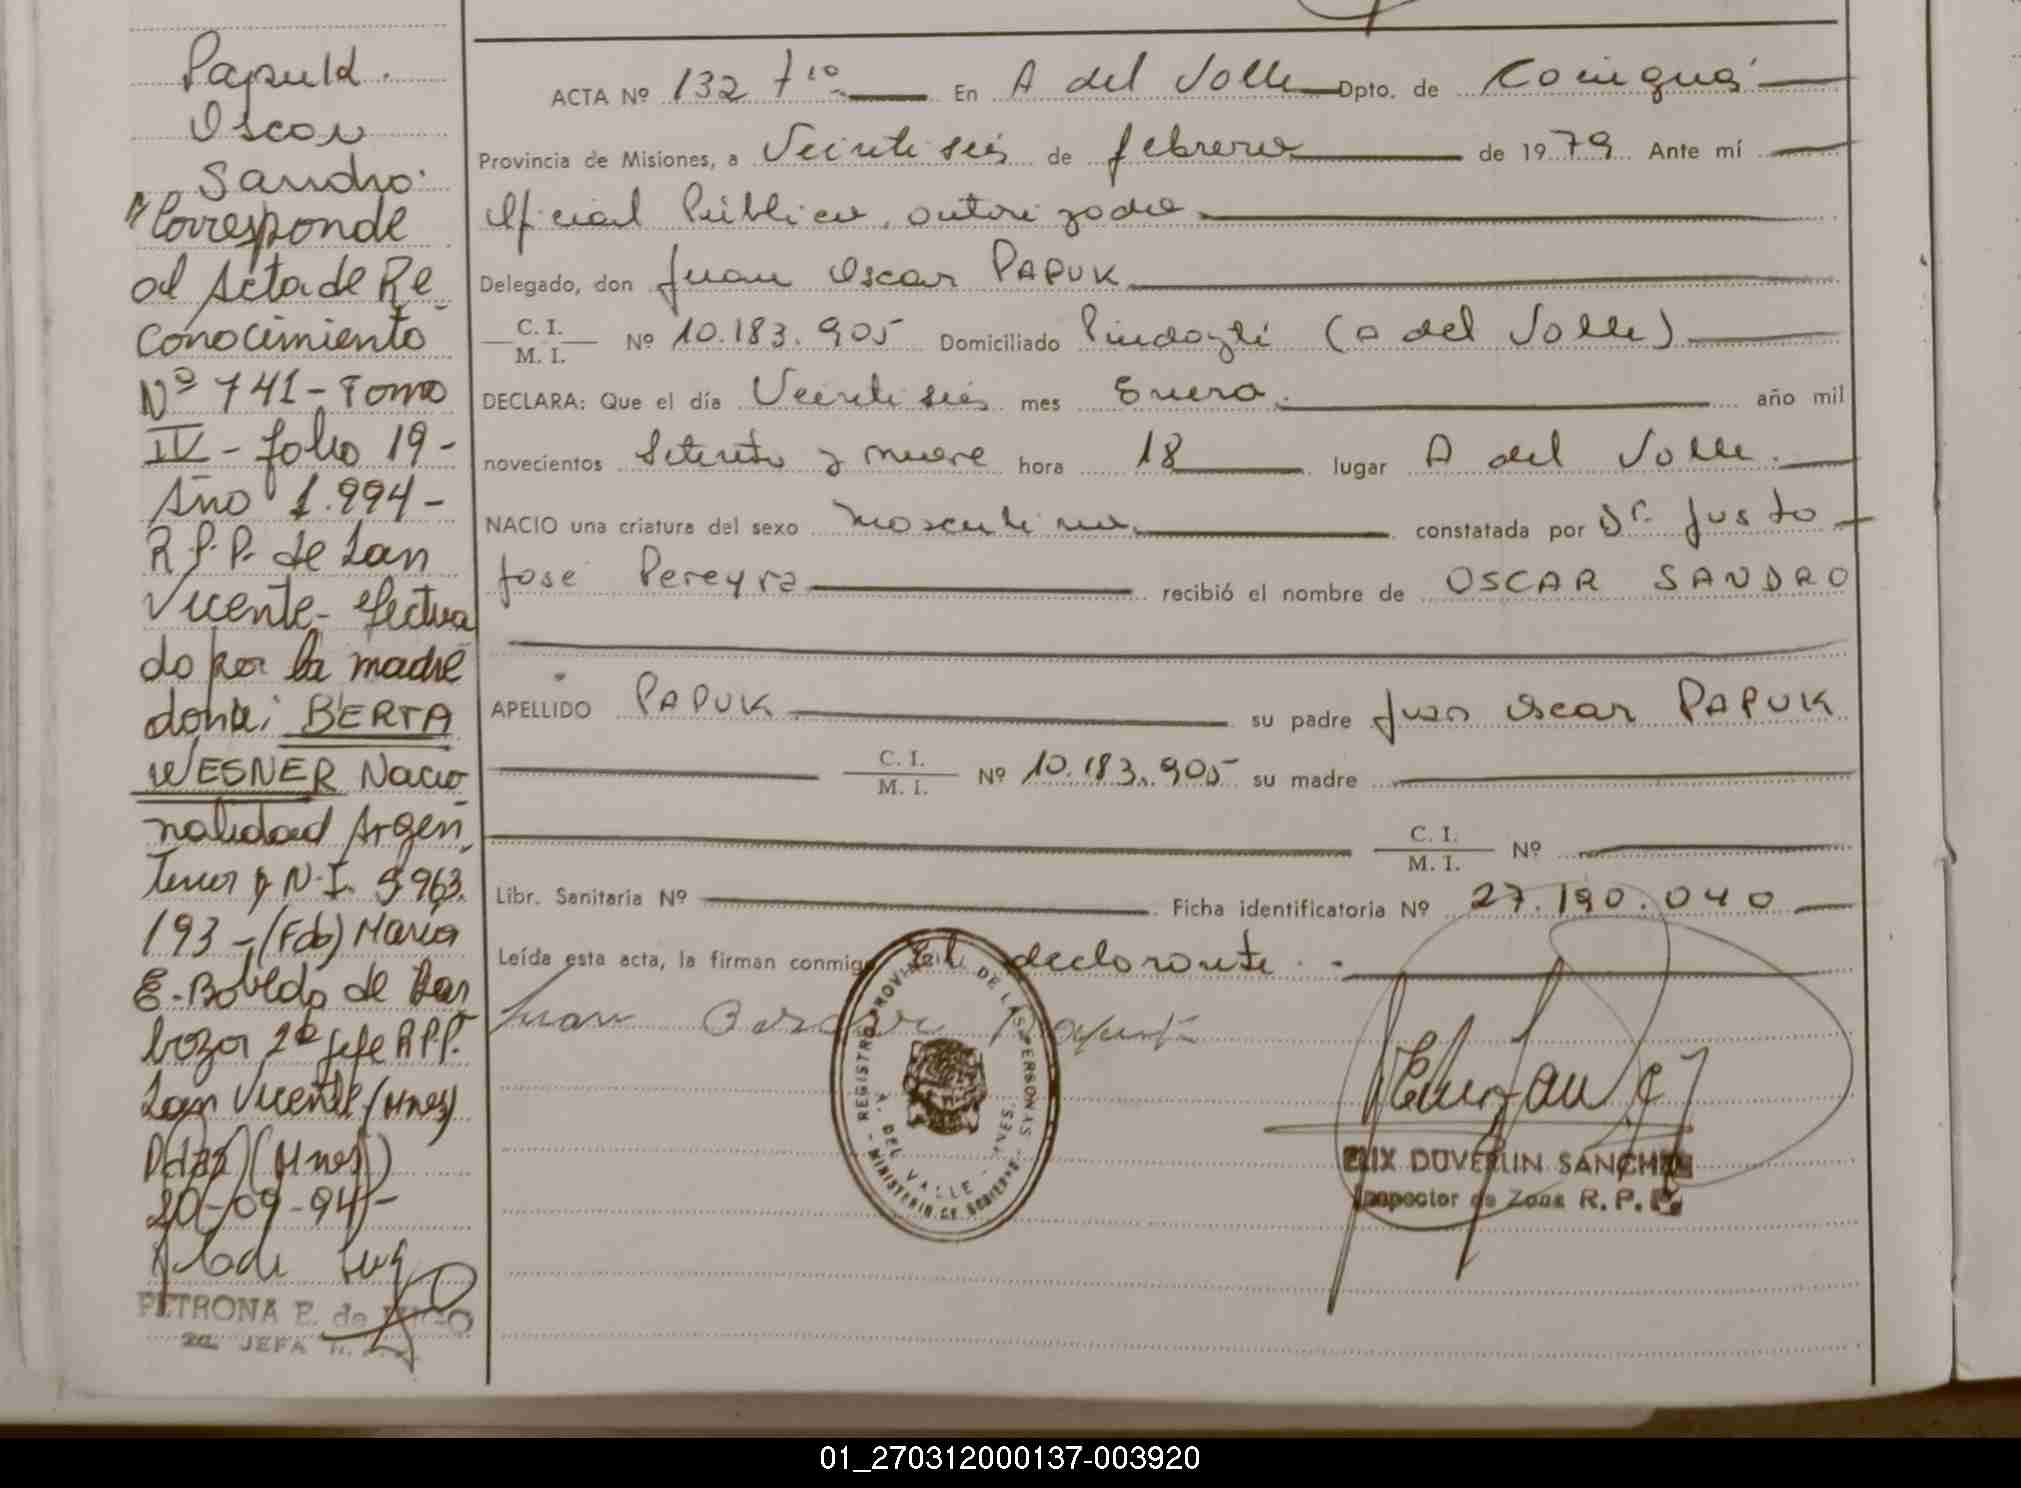 Papuk.
Oscar
Sandro.
"Corresponde
al Acta de Re
conocimiento
Nº 741 - Tomo
IV - folio 19 -
Año 1.994 -
R.P.P. de San
Vicente - efectua
do por la madre
doña: BERTA
WESNER Nacio
nalidad Argen
D.N.I. 5963.
193 - (Fdo) María
E. Bobeda de Bar
boza 2da Jefe R.P.P.
San Vicente (Mnes)
(Mnes)
20-09-94 -
PETRONA E. de LUGO
2a. JEFA
ACTA Nº 132 7º En A del Valle Dpto. de Cainguás
Provincia de Misiones, a Veintiseis de febrero de 1979 Ante mí
Oficial Público, autorizado
Delegado, don Juan Oscar PAPUK
C. I.
M. I. Nº 10.183.905 Domiciliado Pindayti (A del Valle)
DECLARA: Que el día Veintiseis mes Enero año mil
novecientos Setenta y nueve hora 18 lugar A del Valle.
NACIO una criatura del sexo masculino constatada por Dr. Justo
José Pereyra recibió el nombre de OSCAR SANDRO
APELLIDO PAPUK su padre Juan Oscar PAPUK
C. I.
M. I. Nº 10.183.905 su madre
C. I.
M. I. Nº
Libr. Sanitaria Nº Ficha identificatoria Nº 27.190.040
Leída esta acta, la firman conmigo El declarante.
Juan Oscar Papuk
REGISTRO PROVINCIAL DE LAS PERSONAS
A. DEL VALLE - MNES.
MINISTERIO DE GOBIERNO
DUVERLIN SANCHEZ
Inspector de Zona R. P. P.
01_270312000137-003920